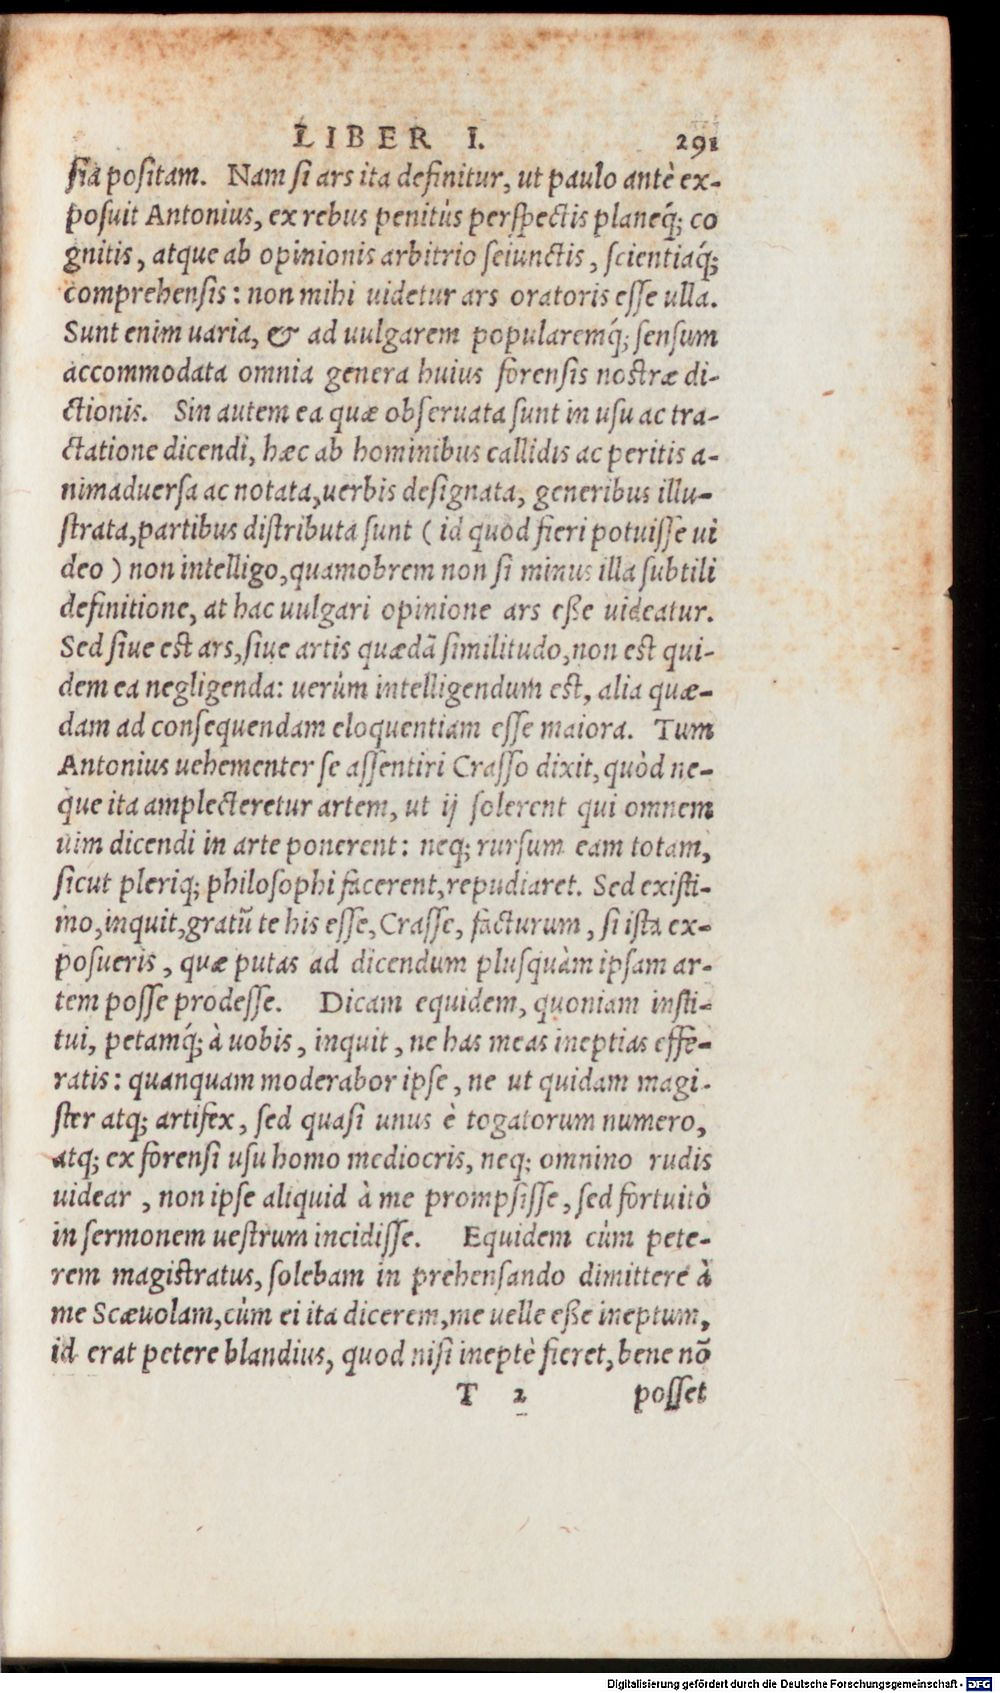 LIBER I. 291
sia positam. Nam si ars ita definitur, ut paulo antè ex-
posuit Antonius, ex rebus penitùs perspectis planeq́; co
gnitis, atque ab opinionis arbitrio seiunctis, scientiaq́;
comprehensis: non mihi uidetur ars oratoris esse ulla.
Sunt enim uaria, & ad uulgarem popularemq́; sensum
accommodata omnia genera huius forensis nostræ di-
ctionis. Sin autem ea quæ obseruata sunt in usu ac tra-
ctatione dicendi, hæc ab hominibus callidis ac peritis a-
nimaduersa ac notata, uerbis designata, generibus illu-
strata, partibus distributa sunt ( id quod fieri potuisse ui
deo ) non intelligo, quamobrem non si minus illa subtili
definitione, at hac uulgari opinione ars eße uideatur.
Sed siue est ars, siue artis quædã similitudo, non est qui-
dem ea negligenda: uerùm intelligendum est, alia quæ-
dam ad consequendam eloquentiam esse maiora. Tum
Antonius uehementer se assentiri Crasso dixit, quòd ne-
que ita amplecteretur artem, ut ij solerent qui omnem
uim dicendi in arte ponerent: neq; rursum eam totam,
sicut pleriq; philosophi facerent, repudiaret. Sed existi-
mo, inquit, gratũ te his esse, Crasse, facturum, si ista ex-
posueris, quæ putas ad dicendum plusquàm ipsam ar-
tem posse prodesse. Dicam equidem, quoniam insti-
tui, petamq́; à uobis, inquit, ne has meas ineptias effe-
ratis: quanquam moderabor ipse, ne ut quidam magi-
ster atq; artifex, sed quasi unus è togatorum numero,
atq; ex forensi usu homo mediocris, neq; omnino rudis
uidear, non ipse aliquid à me prompsisse, sed fortuitò
in sermonem uestrum incidisse. Equidem cùm pete-
rem magistratus, solebam in prehensando dimittere à
me Scæuolam, cùm ei ita dicerem, me uelle eße ineptum,
id erat petere blandius, quod nisi ineptè fieret, bene nõ
T 2 posset
Digitalisierung gefördert durch die Deutsche Forschungsgemeinschaft - DFG